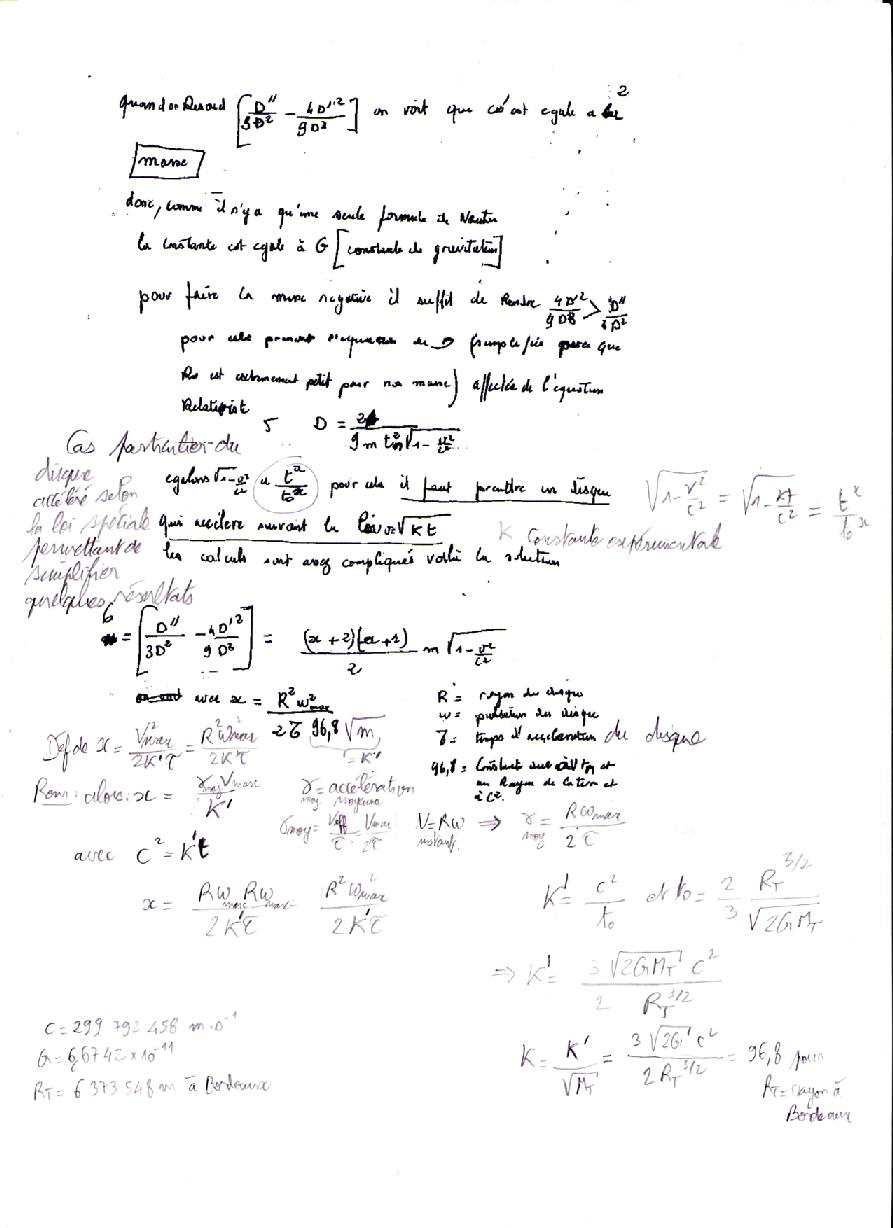 2
quand on Regard [D''/3D² - 4D'²/9D³] on voit que ce est egale a
masse
donc, comme il n'y a qu'une seule formule de Newton
la constante est egale à G [constante de gravitation]
pour faire la masse negative il suffit de Rendre 4D'²/9D³ > D''/3D²
pour cela prenant l'equation de D (simplifiée parce que
Ro est extrement petit pour une masse) affectée de l'equation
Relativist
5 D = 2/9m t² √1-v²/c²
Cas particulier du
disque
accéléré selon
la loi spéciale
permettant de
simplifier
quelques résultats
egalons √1-v²/c² a t^x/to^x pour cela il faut prendre un disque
√1-v²/c² = √1-Kt/c² = t^x/to^x
qui accelere suivant la loi v=√Kt
K Constante expérimentale
les calculs sont assez compliqués voilà la solution
6 = [D''/3D² - 4D'²/9D³] = (x+2)(x+1)/2 m √1-v²/c²
avec x = R²w²max/2τ 96,8 √m
= K'
R = rayon du disque
w = pulsation du disque
τ = temps d'acceleration du disque
96,8 = Constant
un Rayon de la terre et
à C².
Def de x = V²max/2K'τ = R²W²max/2K'τ
Rem: alors: x = γmoy Vmax/K'
γ = accélération
moy moyenne
γmoy = Veff/τ = Vmax/2τ V = Rw ⇒ γmoy = Rwmax/2τ
instant.
avec C² = K't
x = Rwmax Rwmax/2K'τ R²w²max/2K'τ
K' = c²/to et to = 2/3 RT^3/2/√2GMT
⇒ K' = 3√2GMT c²/2 RT^3/2
C = 299 792 458 m.s⁻¹
G = 6,6742 x 10⁻¹¹
RT = 6 373 548 m à Bordeaux
K = K'/√MT = 3√2G c²/2RT^3/2 = 96,8 pour
RT = rayon à
Bordeaux